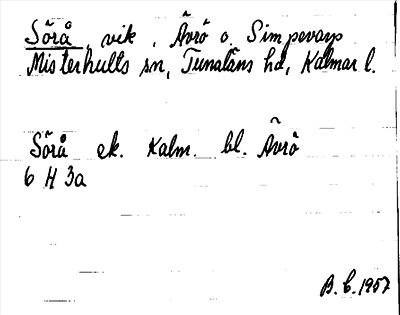 Sörå, vik, Ävrö o. Simpevarp
Misterhults sn, Tunaläns hd, Kalmar l.
Sörå ek. Kalm. bl. Ävrö
6 H 3a
B. C. 1957